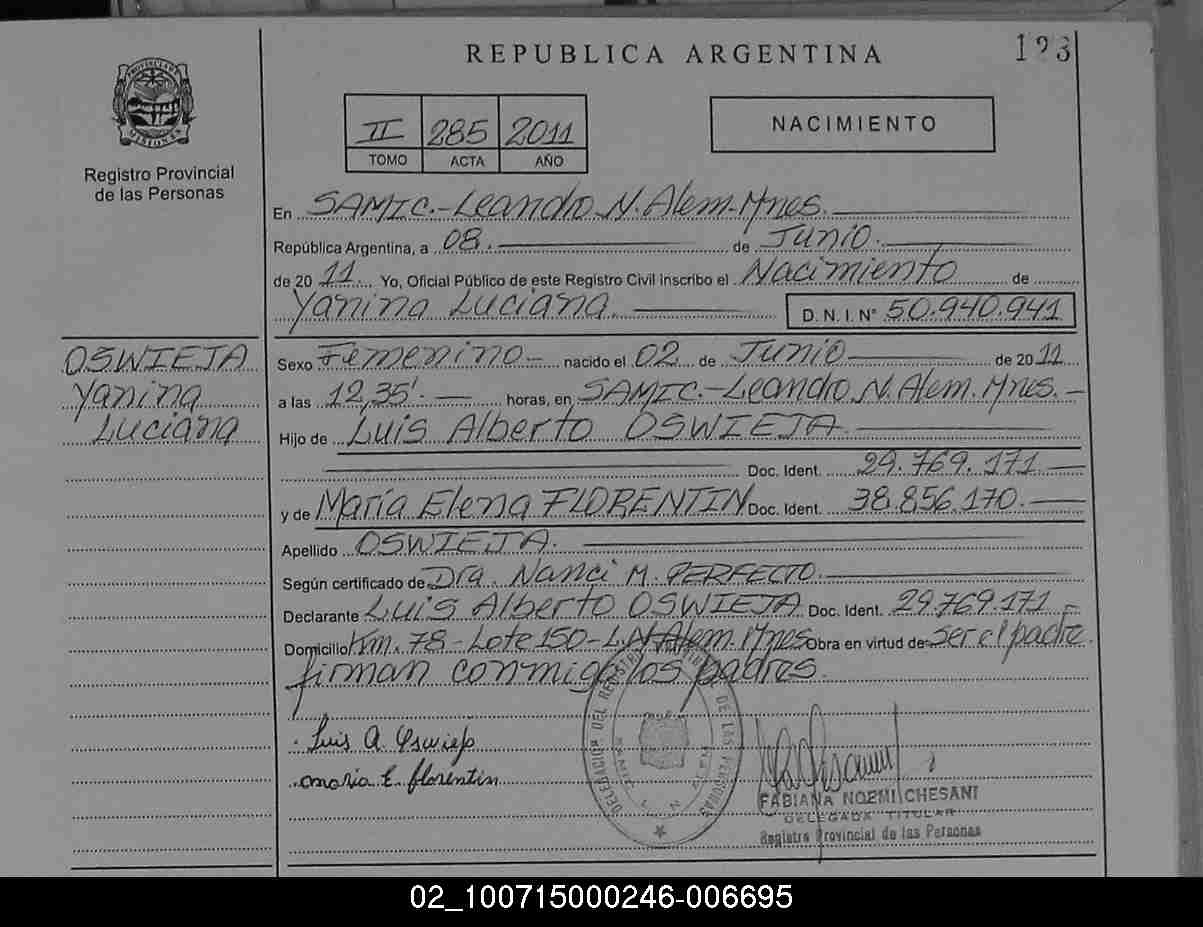 REPUBLICA ARGENTINA
123
PROVINCIA DE
MISIONES
Registro Provincial
de las Personas
II 285 2011
TOMO ACTA AÑO
NACIMIENTO
En SAMIC.-Leandro N. Alem-Mnes.
República Argentina, a 08. de Junio.
de 2011 Yo, Oficial Público de este Registro Civil inscribo el Nacimiento de
Yanina Luciana. D. N. I. N° 50.940.941
OSWIEJA
Yanina
Luciana
Sexo Femenino- nacido el 02 de Junio de 2011
a las 12,35'. horas, en SAMIC.-Leandro N. Alem. Mnes.-
Hijo de Luis Alberto OSWIEJA
Doc. Ident. 29.769.171
y de María Elena FLORENTIN Doc. Ident. 38.856.170.
Apellido OSWIEJA.
Según certificado de Dra. Nanci M. PERFECTO.
Declarante Luis Alberto OSWIEJA Doc. Ident. 29.769.171
Domicilio Km. 78-Lote 150-L.N.Alem. Mnes Obra en virtud de ser el padre.
firman conmigo los padres.
Luis A. Oswieja
maria E. florentin
DELEGACION DEL REGISTRO PROVINCIAL DE LAS PERSONAS
FABIANA NOEMI CHESANI
DELEGADA TITULAR
Registro Provincial de las Personas
02_100715000246-006695